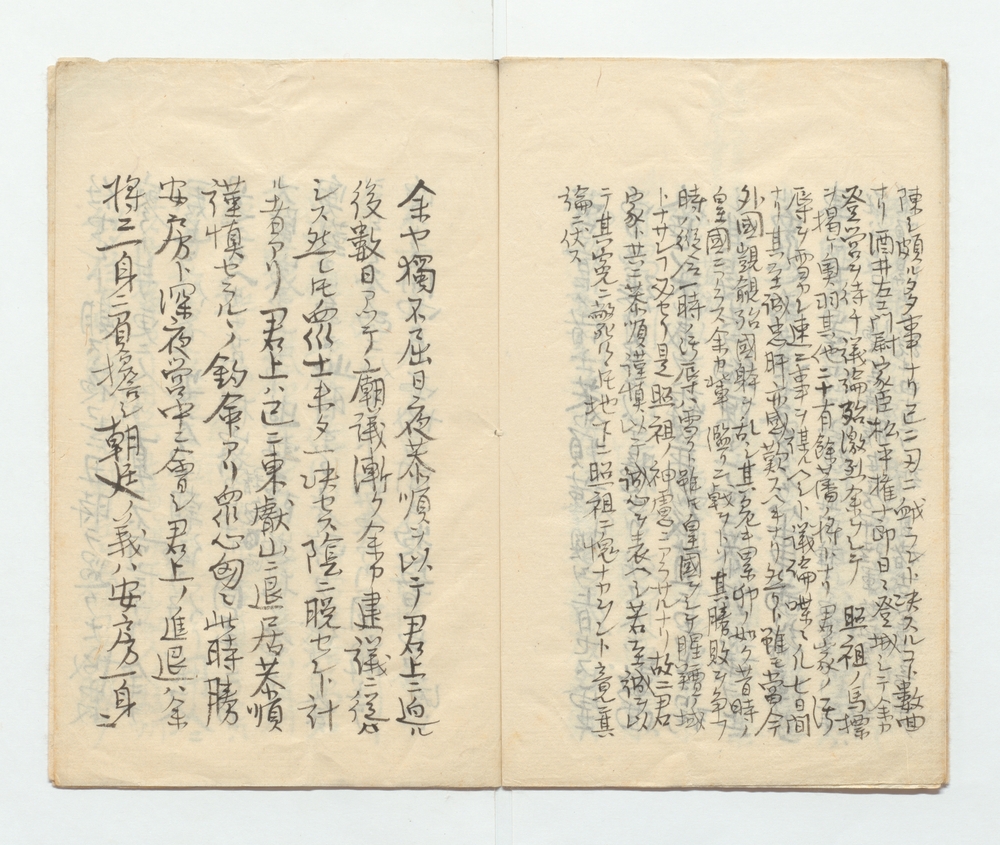 陳シ頗ル多事ナリ已ニ刃ニ衂ラント決スルコト數
ナリ酒井左エ門尉家臣松平權十郎日々登城シテ余カ
登営ヲ待チ議論殆激烈余ヲシテ照祖ノ馬標
ヲ揭ケ奥羽其他二十有餘藩ノ將トナリ君家ノ汚
辱ヲ雪カン連ニ事ヲ某ヘシト議論喋々ル七日間
ナリ其至誠忠肝亦感歎スヘキナリ然リト雖モ當今
外國覬覦殆國躰ヲ其危キ累卵ノ如ク昔時ノ
皇國ニアラス余カ輩濫リニ戰ヲトリ其勝敗ヲ争フ
時ハ從令一時ノ汚辱ハ雪クト雖モ皇國ヲシテ腥羶ノ域
トナサシム是照祖ノ神慮ニアラサルナリ故ニ君
家ト共ニ恭順謹慎以テ誠心ヲ表ヘシ若至誠ヲ以
テ其寃ニ斃ルトモ地下ニ照祖ニ愧ナカラント竟其
論ニ伏ス
余ヤ獨不屈日夜恭順ヲ以テ君上ニ迫ル
後數日アリテ廟議漸ク余カ建議ニ從
シス然レトモ衆士未タ一決セス陰ニ脱セント計
ル者アリ君上ハ已ニ東叡山ニ退居恭順
謹慎セラルノ鈞命アリ衆心匈々此時勝
安房ト深夜営中ニ會シ君上ノ進退ハ余
將ニ一身ニ負擔シ朝廷ノ義ハ安房一身ニ